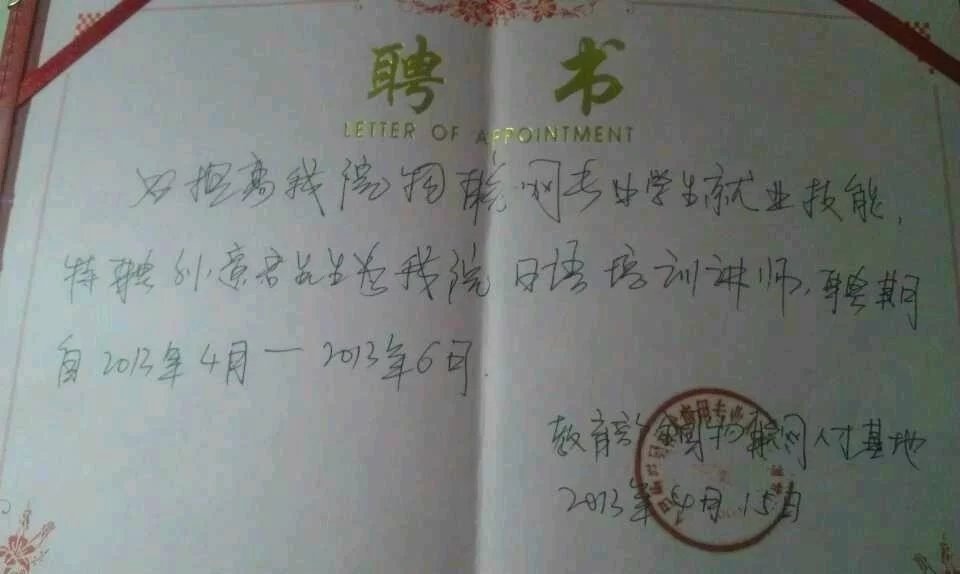 聘书
LETTER OF APPOINTMENT
为提高我院物联网专业学生就业技能,
特聘 先生为我院日语培训讲师,聘期
自2013年4月—2013年6月.
教育部全国物联网人才基地
2013年4月15日